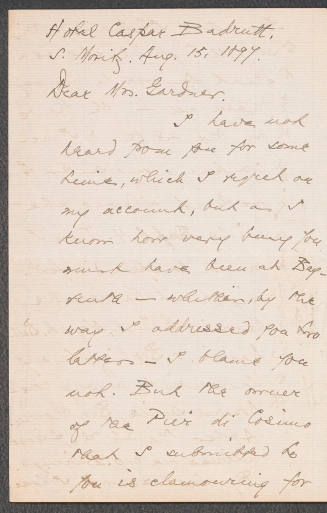 Hotel Caspar Badrutt.
S. Moritz. Aug. 15, 1897.
Dear Mrs. Gardner.
I have not
heard from you for some
time, which I regret on
my account, but as I
know how very busy you
must have been at Bay-
reuth — whither, by the
way I addressed you two
letters — I blame you
not. But the owner
of the Pier di Cosimo
that I submitted to
you is clamouring for